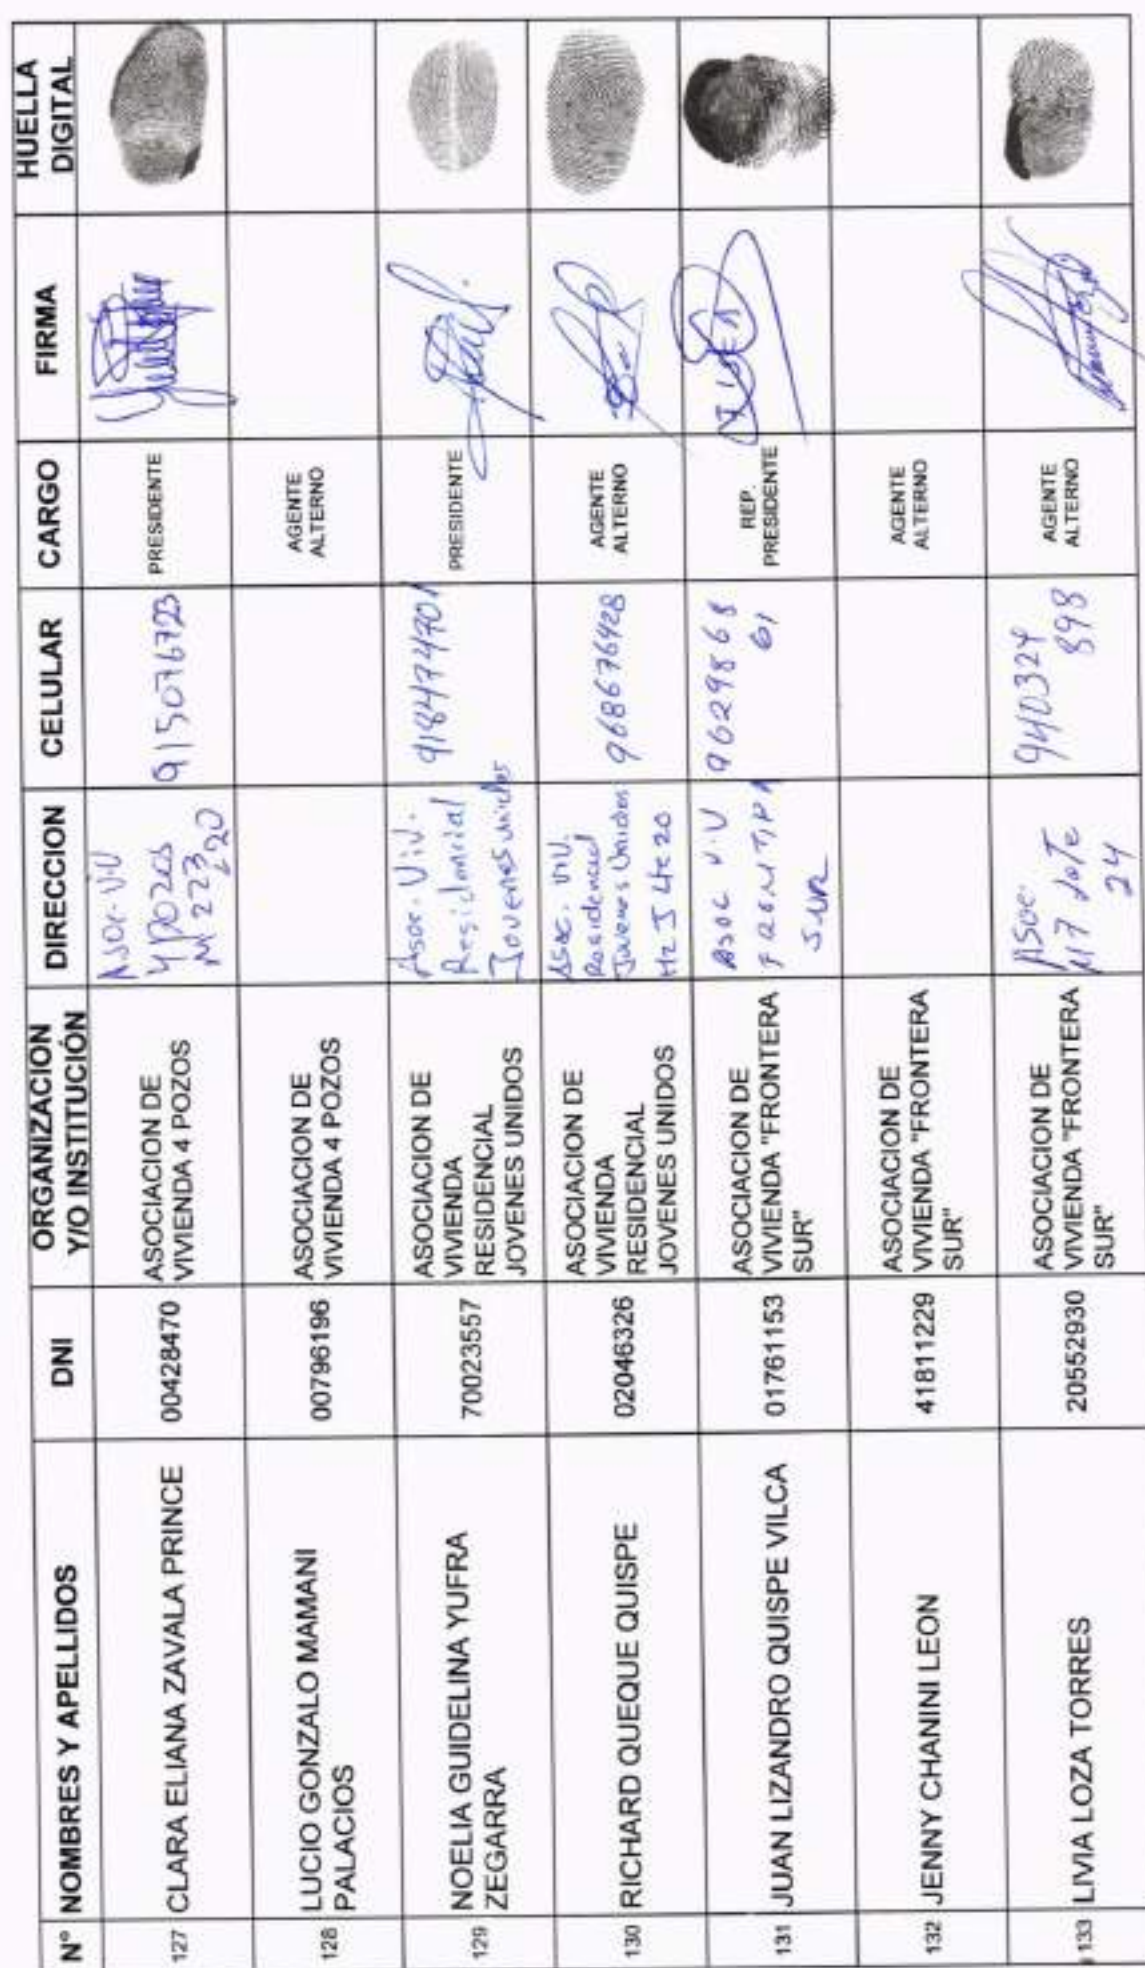 N° NOMBRES Y APELLIDOS DNI ORGANIZACION Y/O INSTITUCIÓN DIRECCION CELULAR CARGO FIRMA HUELLA DIGITAL
127 CLARA ELIANA ZAVALA PRINCE 00428470 ASOCIACION DE VIVIENDA 4 POZOS Asoc. Viv 4 pozos M 223 L 20 915076723 PRESIDENTE
128 LUCIO GONZALO MAMANI PALACIOS 00796196 ASOCIACION DE VIVIENDA 4 POZOS AGENTE ALTERNO
129 NOELIA GUIDELINA YUFRA ZEGARRA 70023557 ASOCIACION DE VIVIENDA RESIDENCIAL JOVENES UNIDOS Asoc. Viv. Residencial Jovenes unidos 918474701 PRESIDENTE
130 RICHARD QUEQUE QUISPE 02046326 ASOCIACION DE VIVIENDA RESIDENCIAL JOVENES UNIDOS Asoc. Viv. Residencial Jovenes Unidos Mz J Lte 20 968676428 AGENTE ALTERNO
131 JUAN LIZANDRO QUISPE VILCA 01761153 ASOCIACION DE VIVIENDA "FRONTERA SUR" ASOC V.V SUR 9629868 61 REP. PRESIDENTE
132 JENNY CHANINI LEON 41811229 ASOCIACION DE VIVIENDA "FRONTERA SUR" AGENTE ALTERNO
133 LIVIA LOZA TORRES 20552930 ASOCIACION DE VIVIENDA "FRONTERA SUR" Asoc. M7 lote 24 940324 898 AGENTE ALTERNO